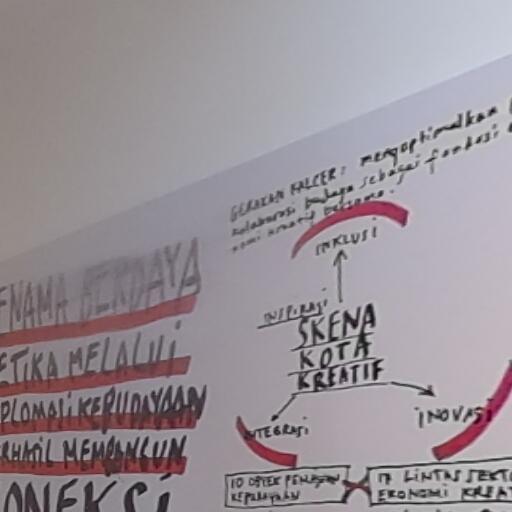 ENAMA BERDAYA
ETIKA MELALUI
PLOMASI KEBUDAYAAN
ERHASIL MEMBANGUN
ONEKSI
GERAKAN KALCER: mengoptimalkan
kolaborasi budaya sebagai fondasi
nomi kreatif bersama.
INKLUSI
INSPIRASI
SKENA
KOTA
KREATIF
INTEGRASI
INOVASI
10 OBYEK PEMAJUAN
KEBUDAYAAN
17 LINTAS SEKTO
EKONOMI KREAT